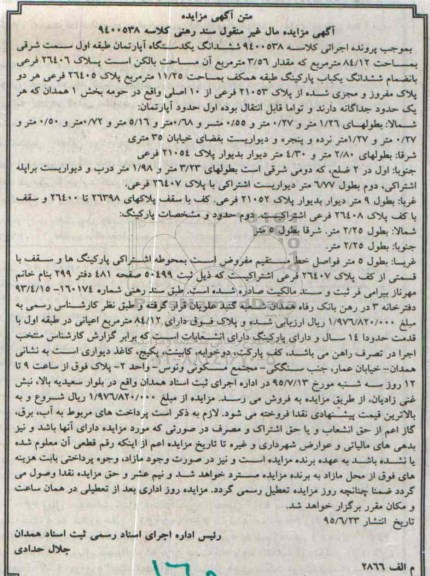 متن آگهی مزایده
آگهی مزایده مال غیر منقول سند رهنی کلاسه ۹۴۰۰۵۳۸
بموجب پرونده اجرائی کلاسه ۹۴۰۰۵۳۸ ششدانگ یکدستگاه آپارتمان طبقه اول سمت شرقی
بمساحت ۸۴/۱۲ مترمربع که مقدار ۳/۵۶ مترمربع آن مساحت بالکن است پلاک ۲۶۴۰۶ فرعی
بانضمام ششدانگ یکباب پارکینگ طبقه همکف بمساحت ۱۱/۲۵ مترمربع پلاک ۲۶۴۰۵ فرعی هر دو
پلاک مفروز و مجزی شده از پلاک ۲۱۰۵۳ فرعی از ۱۰ اصلی واقع در حومه بخش ۱ همدان که هر
یک حدود جداگانه دارند و تواما قابل انتقال بوده اول حدود آپارتمان:
شمالا: بطولهای ۱/۲۶ متر و ۰/۲۷ متر و ۰/۵۵ متر و ۰/۶۸ متر و ۵/۱۶ متر و ۰/۷۲ متر و ۰/۵۰ متر و
۰/۲۷ متر و ۱/۲۷ متر نرده و پنجره و دیواریست بفضای خیابان ۳۵ متری
شرقا: بطولهای ۲/۸۰ متر و ۴/۳۰ متر دیوار بدیوار پلاک ۲۱۰۵۴ فرعی
جنوبا: اول در ۲ ضلع، که دومی شرقی است بطولهای ۳/۲۳ متر و ۱/۹۸ متر درب و دیواریست براپله
اشتراکی، دوم بطول ۶/۷۷ متر دیواریست اشتراکی با پلاک ۲۶۴۰۷ فرعی.
غربا: بطول ۹ متر دیوار بدیوار پلاک ۲۱۰۵۲ فرعی. کف با سقف پلاکهای ۲۶۳۹۸ تا ۲۶۴۰۰ و سقف
با کف پلاک ۲۶۴۰۸ فرعی اشتراکیست. دوم حدود و مشخصات پارکینگ:
شمالا: بطول ۲/۲۵ متر. شرقا بطول ۵ متر
جنوبا: بطول ۲/۲۵ متر.
غربا: بطول ۵ متر فواصل خط مستقیم مفروض است بمحوطه اشتراکی پارکینگ ها و سقف با
قسمتی از کف پلاک ۲۶۴۰۷ فرعی اشتراکیست که ذیل ثبت ۵۰۴۹۹ صفحه ۴۸۱ دفتر ۲۹۹ بنام خانم
مهرناز بیرامی فر ثبت و سند مالکیت صادره شده است. طبق سند رهنی شماره ۱۶۰۱۷۴-۹۳/۴/۱۵
دفترخانه ۳ در رهن بانک رفاه همدان شعبه گنبد علویان قرار گرفته و طبق نظر کارشناس رسمی به
مبلغ ۱/۹۷۶/۸۲۰/۰۰۰ ریال ارزیابی شده و پلاک فوق دارای ۸۴/۱۲ مترمربع اعیانی در طبقه اول با
قدمت حدودا ۱۴ سال و دارای پارکینگ دارای انشعابات است که برابر گزارش کارشناس منتخب
اجرا در تصرف راهن می باشد، کف پارکت، دوخوابه، کابینت، پکیج، کاغذ دیواری است به نشانی
همدان-خیابان عمار، جنب سنگکی-مجتمع مسکونی ونوس-واحد ۲- پلاک فوق از ساعت ۹ تا
۱۲ روز سه شنبه مورخ ۹۵/۷/۱۳ در اداره اجرای ثبت اسناد همدان واقع در بلوار سعیدیه بالا، نبش
غنی زادیان، از طریق مزایده به فروش می رسد. مزایده از مبلغ ۱/۹۷۶/۸۲۰/۰۰۰ ریال شروع و به
بالاترین قیمت پیشنهادی نقدا فروخته می شود. لازم به ذکر است پرداخت های مربوط به آب، برق،
گاز اعم از حق انشعاب و یا حق اشتراک و مصرف در صورتی که مورد مزایده دارای آنها باشد و نیز
بدهی های مالیاتی و عوارض شهرداری و غیره تا تاریخ مزایده اعم از اینکه رقم قطعی آن معلوم شده
یا نشده باشد به عهده برنده مزایده است و نیز در صورت وجود مازاد، وجوه پرداختی بابت هزینه
های فوق از محل مازاد به برنده مزایده مسترد خواهد شد و نیم عشر و حق مزایده نقدا وصول می
گردد ضمنا چنانچه روز مزایده تعطیل رسمی گردد، مزایده روز اداری بعد از تعطیلی در همان ساعت
و مکان مقرر برگزار خواهد شد.
تاریخ انتشار ۹۵/۶/۲۳
رئیس اداره اجرای اسناد رسمی ثبت اسناد همدان
جلال حدادی
م الف ۲۸۶۶